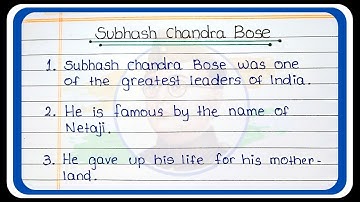 Subhash Chandra Bose
1. Subhash Chandra Bose was one
of the greatest leaders of India.
2. He is famous by the name of
Netaji.
3. He gave up his life for his mother-
land.